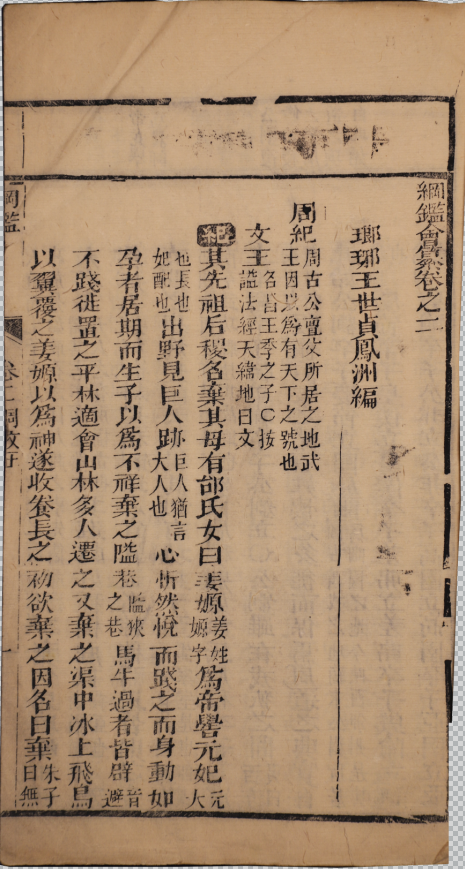 綱鑑會纂卷之二
瑯琊王世貞鳳洲編
周紀周古公亶父所居之地武王因以爲有天下之號也
文王名昌王季之子○按諡法經天緯地曰文
紀其先祖后稷名棄其母有邰氏女曰姜嫄姜姓嫄字爲帝嚳元妃元大
也長也妃配也出野見巨人跡巨人猶言大人也心忻然悅而踐之而身動如
孕者居期而生子以爲不祥棄之隘巷隘狹之巷馬牛過者皆辟音避
不踐徙置之平林適會山林多人遷之又棄之渠中冰上飛鳥
以翼覆之姜嫄以爲神遂收養長之初欲棄之因名曰棄朱子曰無
綱鑑
卷二